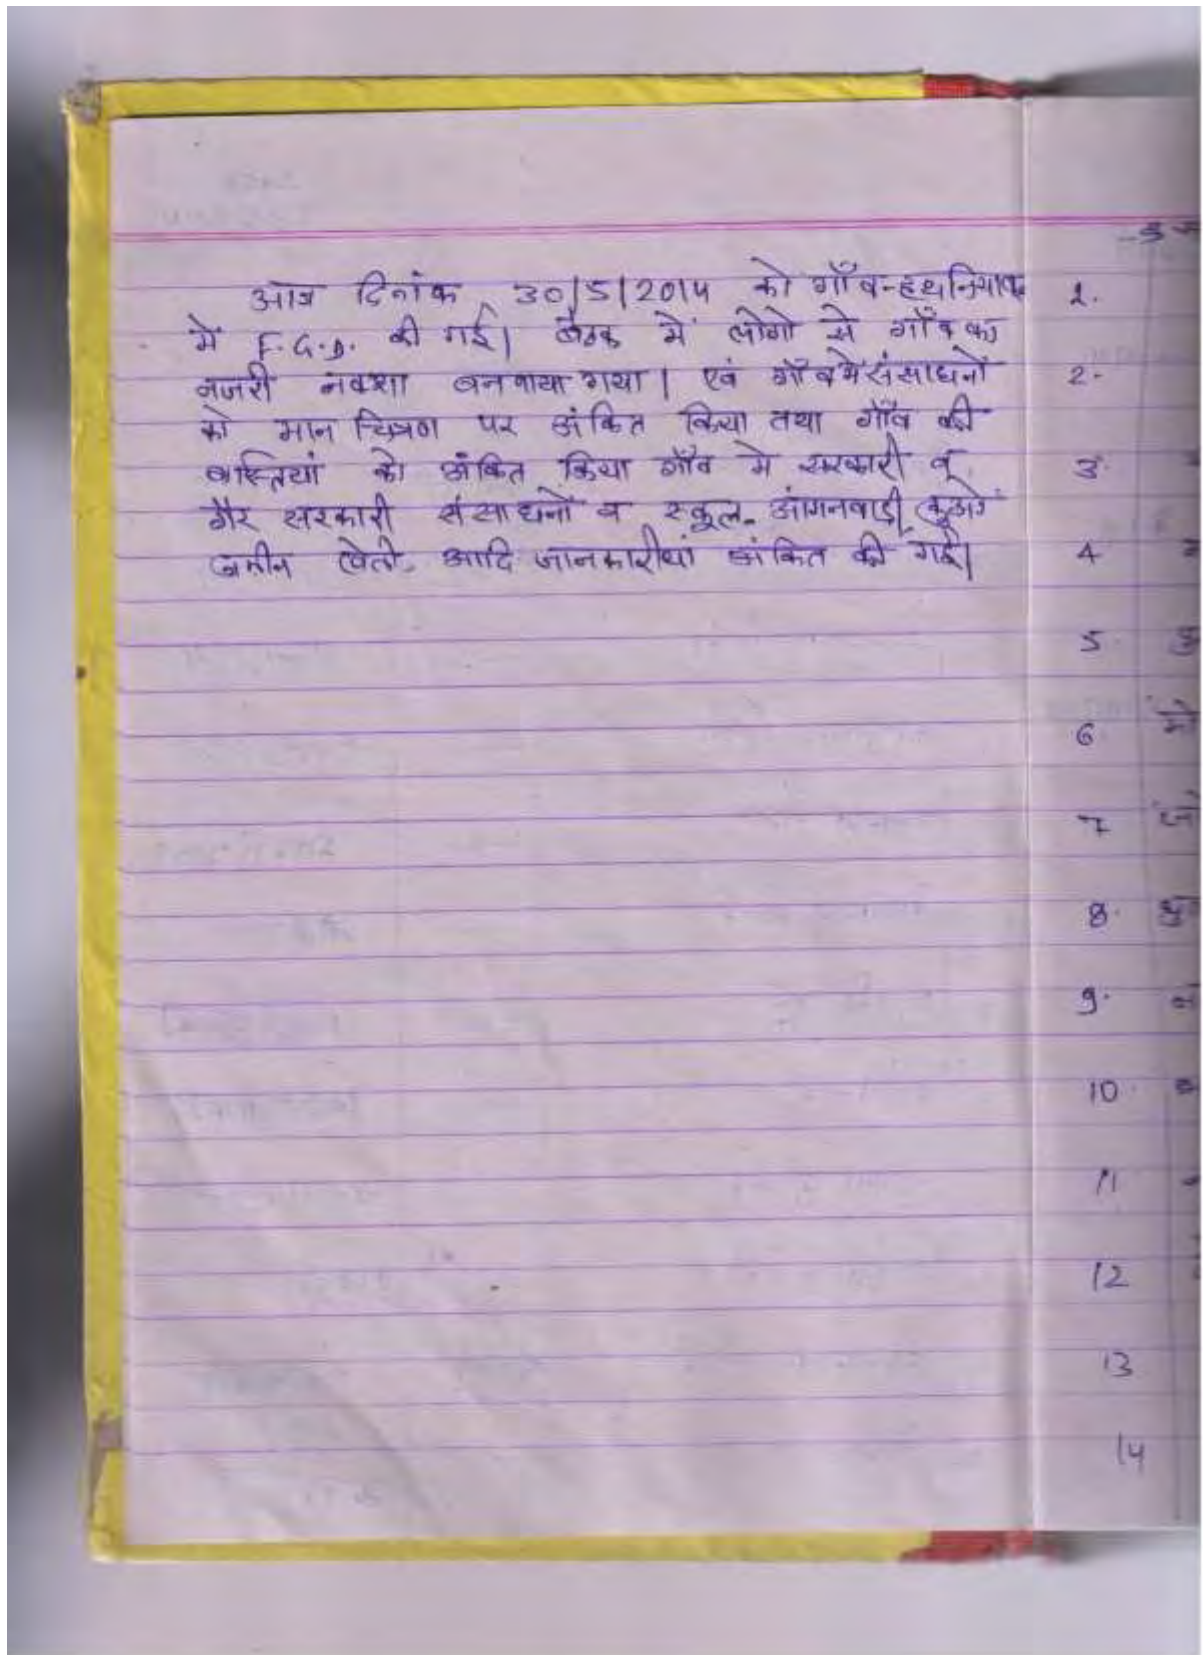 आज दिनांक 30/5/2014 को गाँव-हथनियाबर
में F.G.D. की गई। बैठक में लोगो से गाँव का
नजरी नक्शा बनवाया गया। एवं गाँव में संसाधनों
को मान चित्रण पर अंकित किया तथा गाँव की
बास्तियां को अंकित किया गाँव मे सरकारी व
गैर सरकारी संसाधनों व स्कूल, आंगनवाडी,
जमीन खेती, आदि जानकारीयां अंकित की गई।
1.
2-
3
4
5
6
7
8
9
10
11
12
13
14